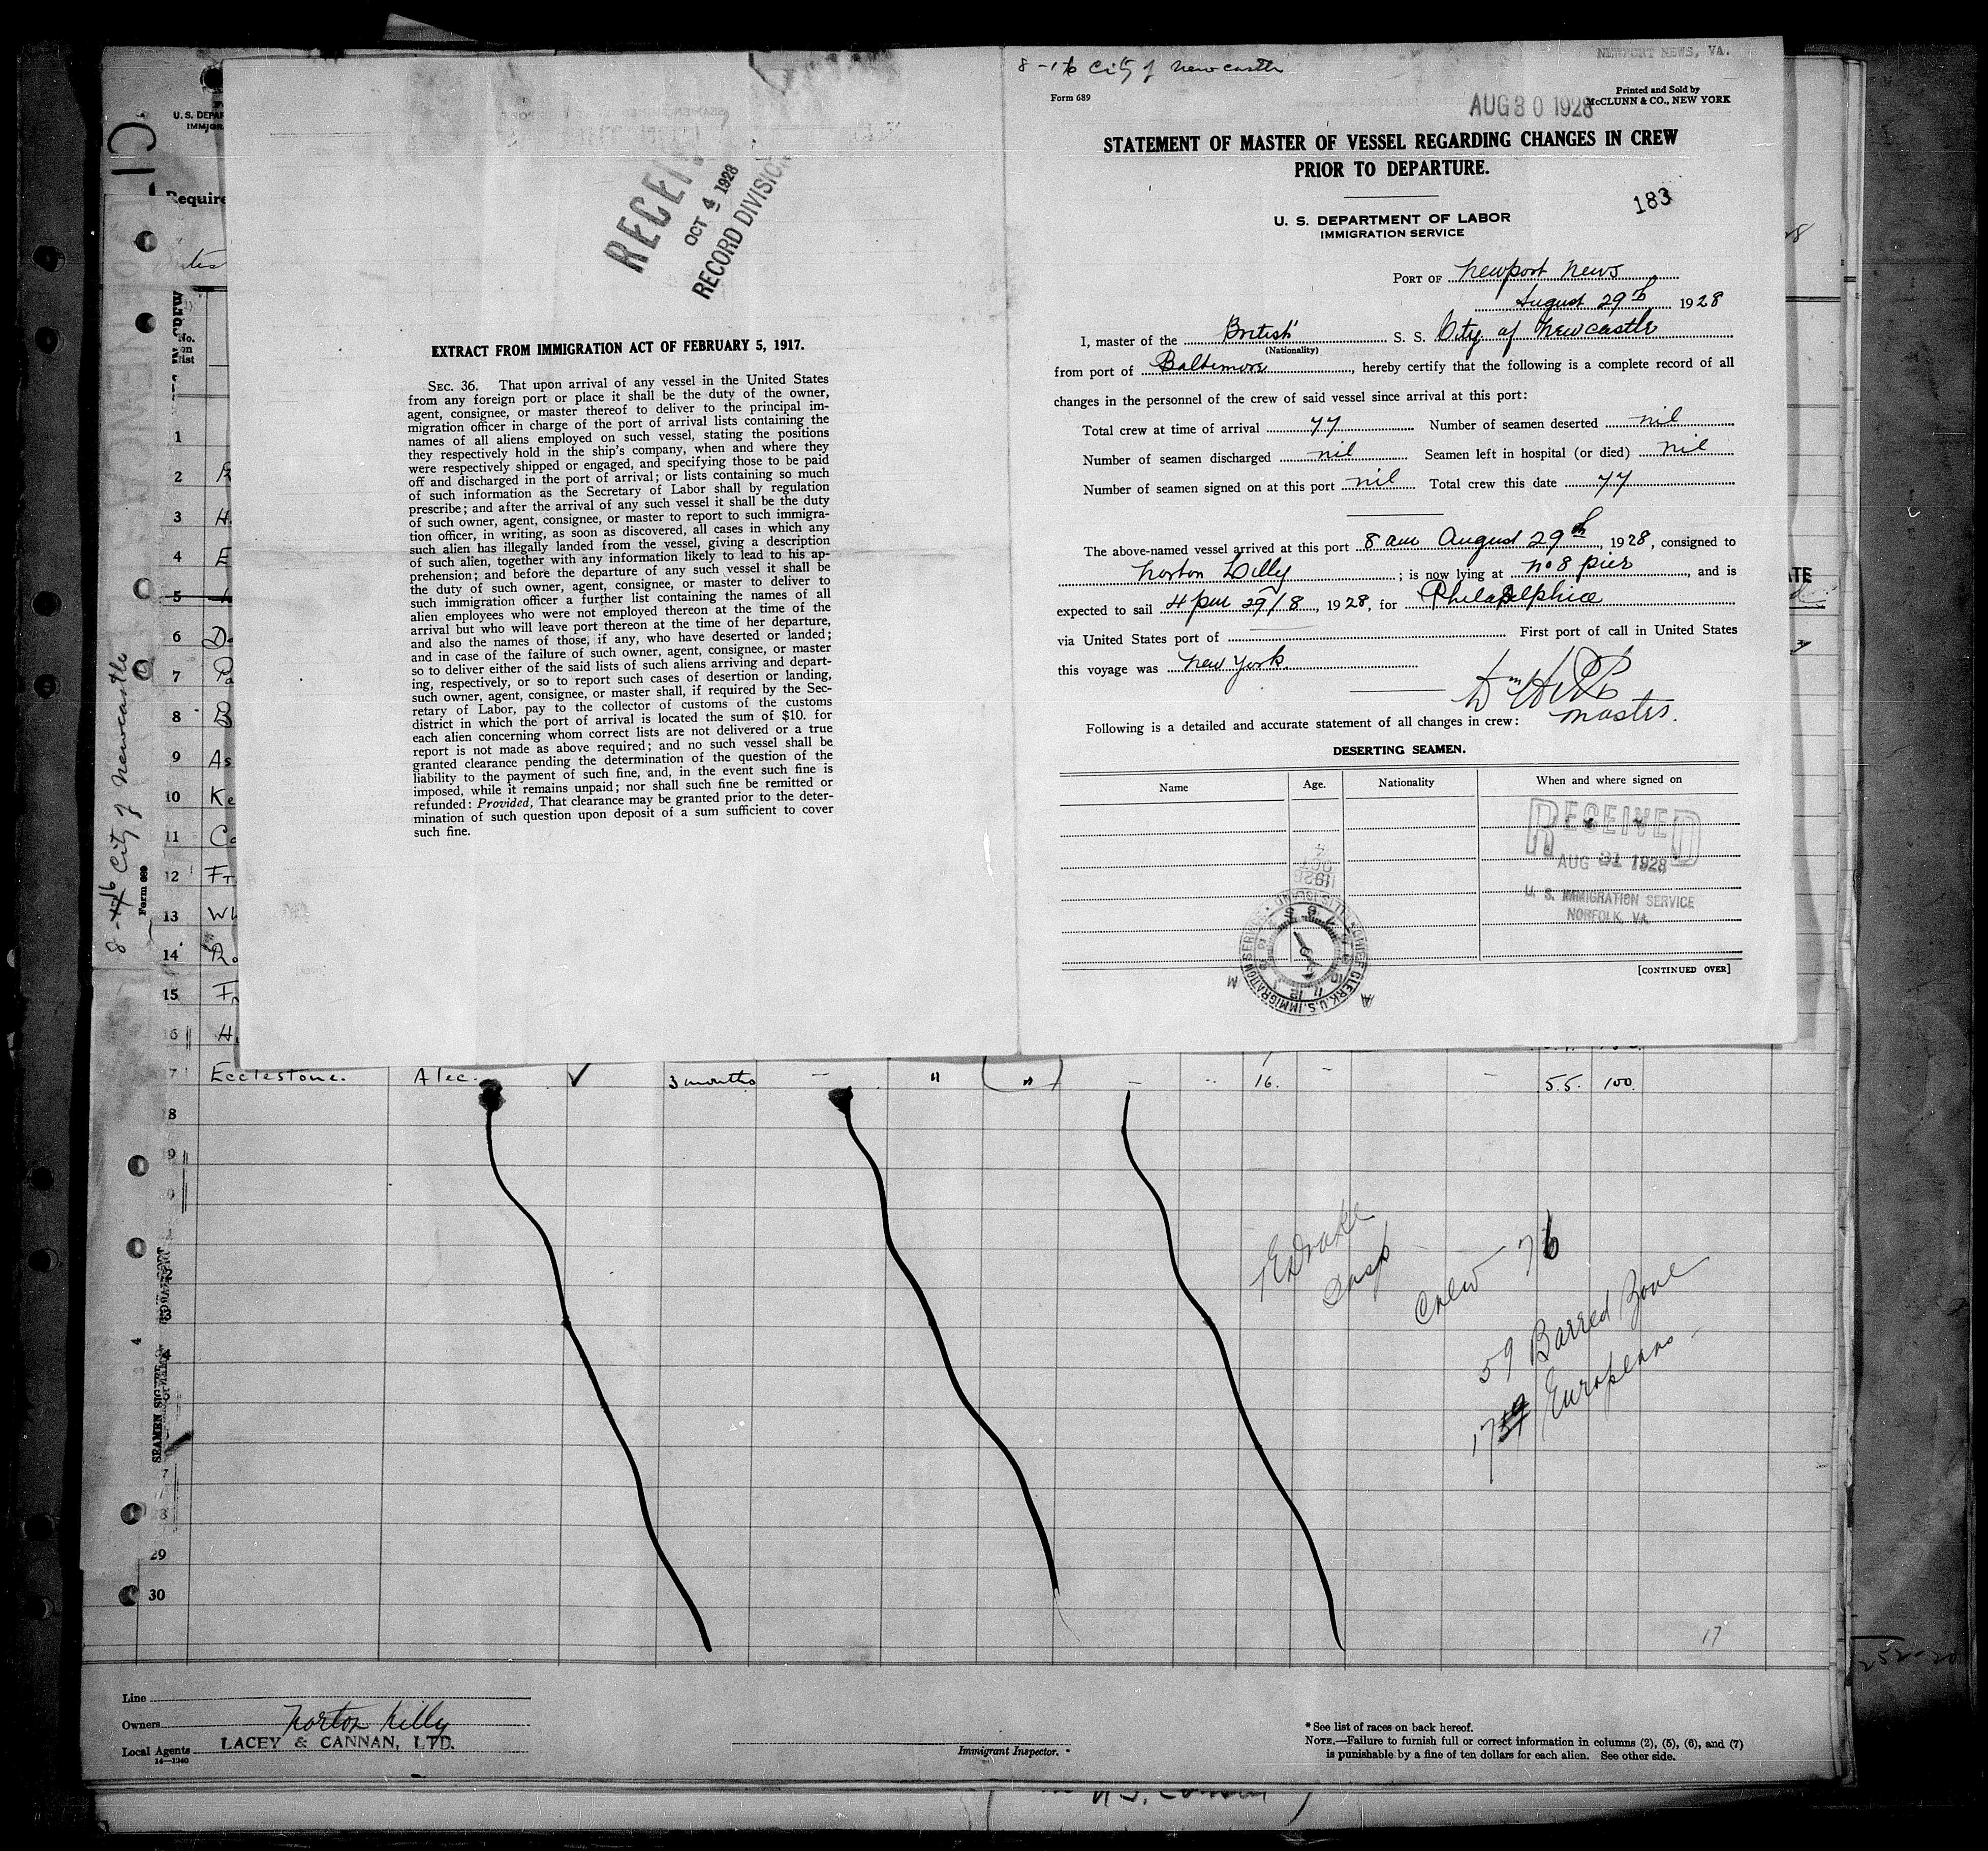 U. S. DEPAR
IMMIGR
Require
No.
on
list
1
2 R
3 H.
4 E
5
6 Da
7 Pa
8 B
9 As
10 Ke
11 Co
12 FT
13 Wh
14 Ro
15 Fr
16 H
8-16 City of Newcastle
Form 689
RECEIV
OCT 4 1928
RECORD DIVISION
EXTRACT FROM IMMIGRATION ACT OF FEBRUARY 5, 1917.
SEC. 36. That upon arrival of any vessel in the United States
from any foreign port or place it shall be the duty of the owner,
agent, consignee, or master thereof to deliver to the principal im-
migration officer in charge of the port of arrival lists containing the
names of all aliens employed on such vessel, stating the positions
they respectively hold in the ship's company, when and where they
were respectively shipped or engaged, and specifying those to be paid
off and discharged in the port of arrival; or lists containing so much
of such information as the Secretary of Labor shall by regulation
prescribe; and after the arrival of any such vessel it shall be the duty
of such owner, agent, consignee, or master to report to such immigra-
tion officer, in writing, as soon as discovered, all cases in which any
such alien has illegally landed from the vessel, giving a description
of such alien, together with any information likely to lead to his ap-
prehension; and before the departure of any such vessel it shall be
the duty of such owner, agent, consignee, or master to deliver to
such immigration officer a further list containing the names of all
alien employees who were not employed thereon at the time of the
arrival but who will leave port thereon at the time of her departure,
and also the names of those, if any, who have deserted or landed;
and in case of the failure of such owner, agent, consignee, or master
so to deliver either of the said lists of such aliens arriving and depart-
ing, respectively, or so to report such cases of desertion or landing,
such owner, agent, consignee, or master shall, if required by the Sec-
retary of Labor, pay to the collector of customs of the customs
district in which the port of arrival is located the sum of $10. for
each alien concerning whom correct lists are not delivered or a true
report is not made as above required; and no such vessel shall be
granted clearance pending the determination of the question of the
liability to the payment of such fine, and, in the event such fine is
imposed, while it remains unpaid; nor shall such fine be remitted or
refunded: Provided, That clearance may be granted prior to the deter-
mination of such question upon deposit of a sum sufficient to cover
such fine.
NEWPORT NEWS, VA.
8-16 City of Newcastle
Form 689
Printed and Sold by
McCLUNN & CO., NEW YORK
AUG 30 1928
STATEMENT OF MASTER OF VESSEL REGARDING CHANGES IN CREW
PRIOR TO DEPARTURE.
183
U. S. DEPARTMENT OF LABOR
IMMIGRATION SERVICE
PORT OF Newport News
August 29th 1928
I, master of the British S. S. City of Newcastle
(Nationality)
from port of Baltimore, hereby certify that the following is a complete record of all
changes in the personnel of the crew of said vessel since arrival at this port:
Total crew at time of arrival 77 Number of seamen deserted nil
Number of seamen discharged nil Seamen left in hospital (or died) nil
Number of seamen signed on at this port nil Total crew this date 77
The above-named vessel arrived at this port 8 am August 29th, 1928, consigned to
Norton Lilly; is now lying at No 8 pier, and is
expected to sail 4 pm 29/8, 1928, for Philadelphia
via United States port of First port of call in United States
this voyage was New York.
Master.
Following is a detailed and accurate statement of all changes in crew:
DESERTING SEAMEN.
Name Age. Nationality When and where signed on
RECEIVED
AUG 31 1928
U. S. IMMIGRATION SERVICE
NORFOLK, VA.
[CONTINUED OVER]
Ecclestone. Alec. ✓ 3 months — " ( " ) — 16. — — 5.5. 100.
8
9
28
29
30
Insp
Crew 76
59 Barred Zone
17 Europeans
17
Line
Owners Norton Lilly
Local Agents LACEY & CANNAN, LTD.
14—1240
Immigrant Inspector.
* See list of races on back hereof.
NOTE.—Failure to furnish full or correct information in columns (2), (5), (6), and (7)
is punishable by a fine of ten dollars for each alien. See other side.